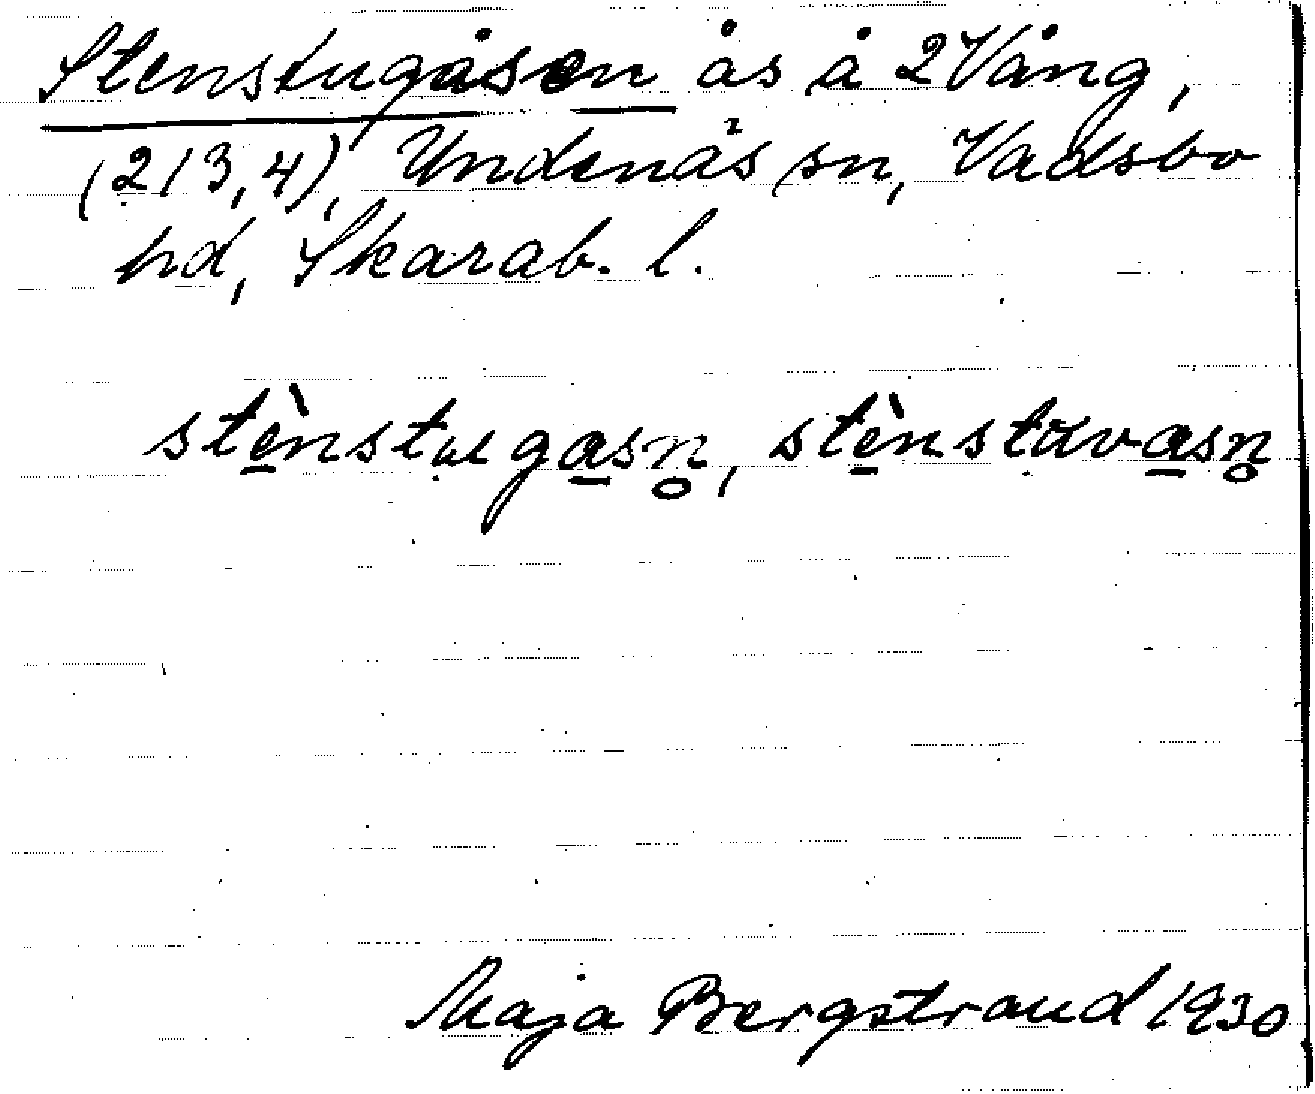 Stenstugåsen ås å 2 Vång,
(213,4), Undenäs sn, Vadsbo
hd, Skarab. l.
stènstugasn̥, stènstavasn̥
Maja Bergstrand 1930